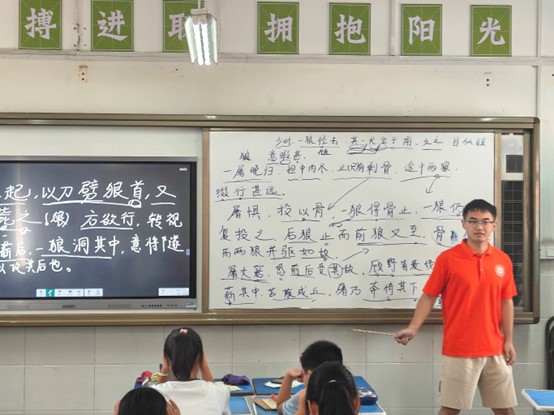 搏 进 取 拥 抱 阳 光
少时,一狼径去,其一犬坐于前,久之,目似瞑
意暇甚
一屠晚归,担中肉尽,止有剩骨,途中两狼
缀行甚远。
屠惧,投以骨,一狼得骨止,一狼仍
复投之,后狼止而前狼又至,骨
而两狼并驱如故
屠大窘,恐前后受其敌,顾野有麦
薪其中,苫蔽成丘,屠乃奔倚其下
起,以刀劈狼首,又
毙之 方欲行,转视
薪后,一狼洞其中,意将隧
以攻其后也。